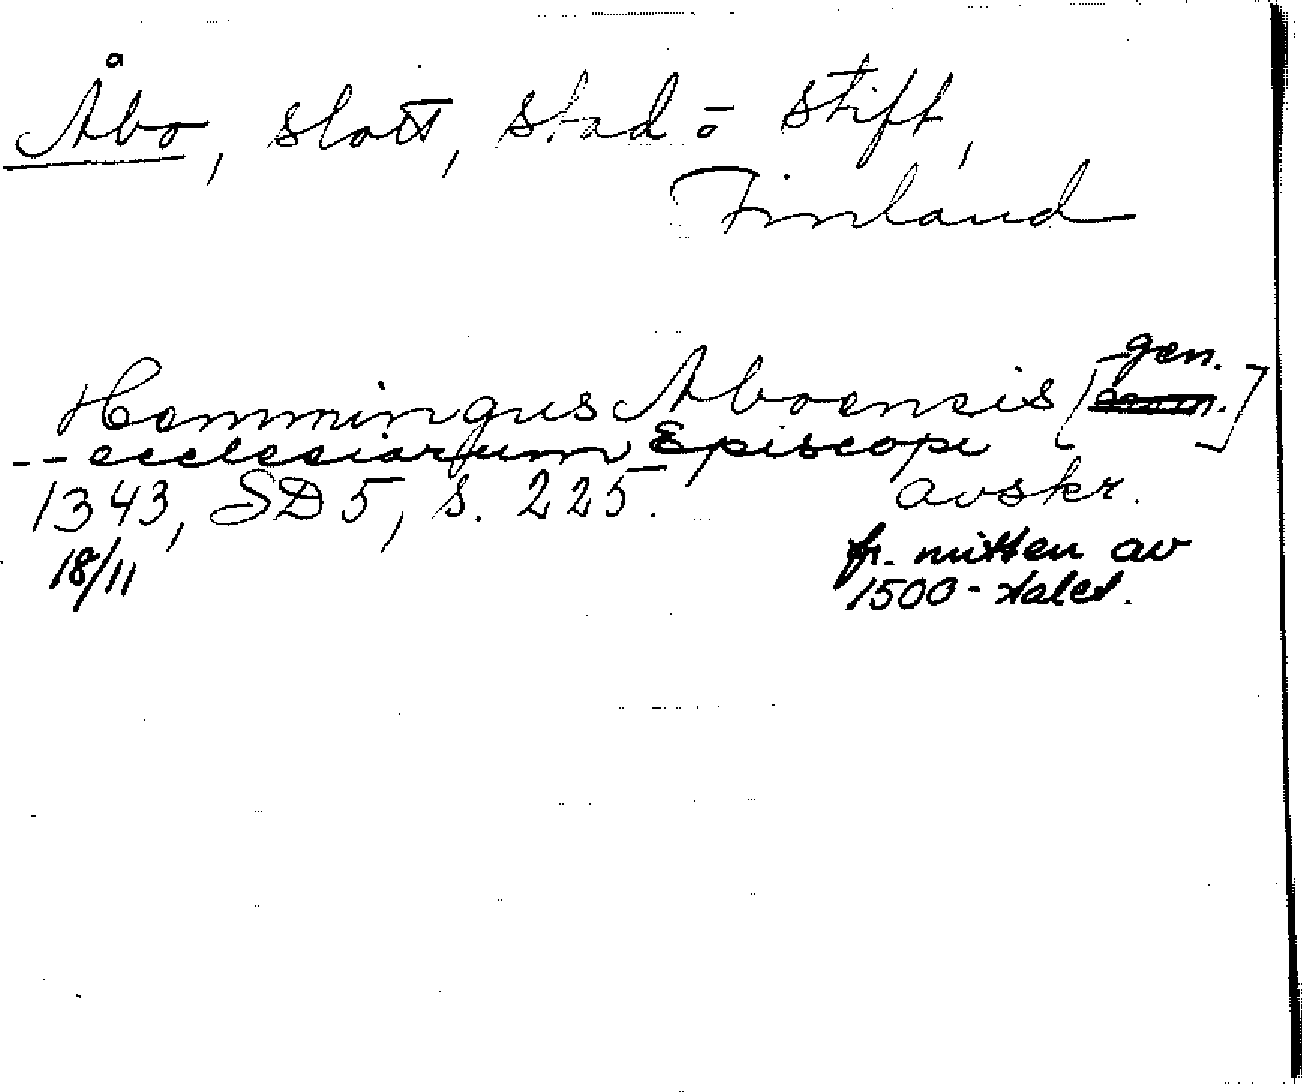 Åbo, slott, stad o stift,
Finland
Hemmingus Aboensis [gen.]
-- ecclesiarum Episcopi
1343, SD 5, s. 225. avskr.
18/11 fr. mitten av
1500-talet.